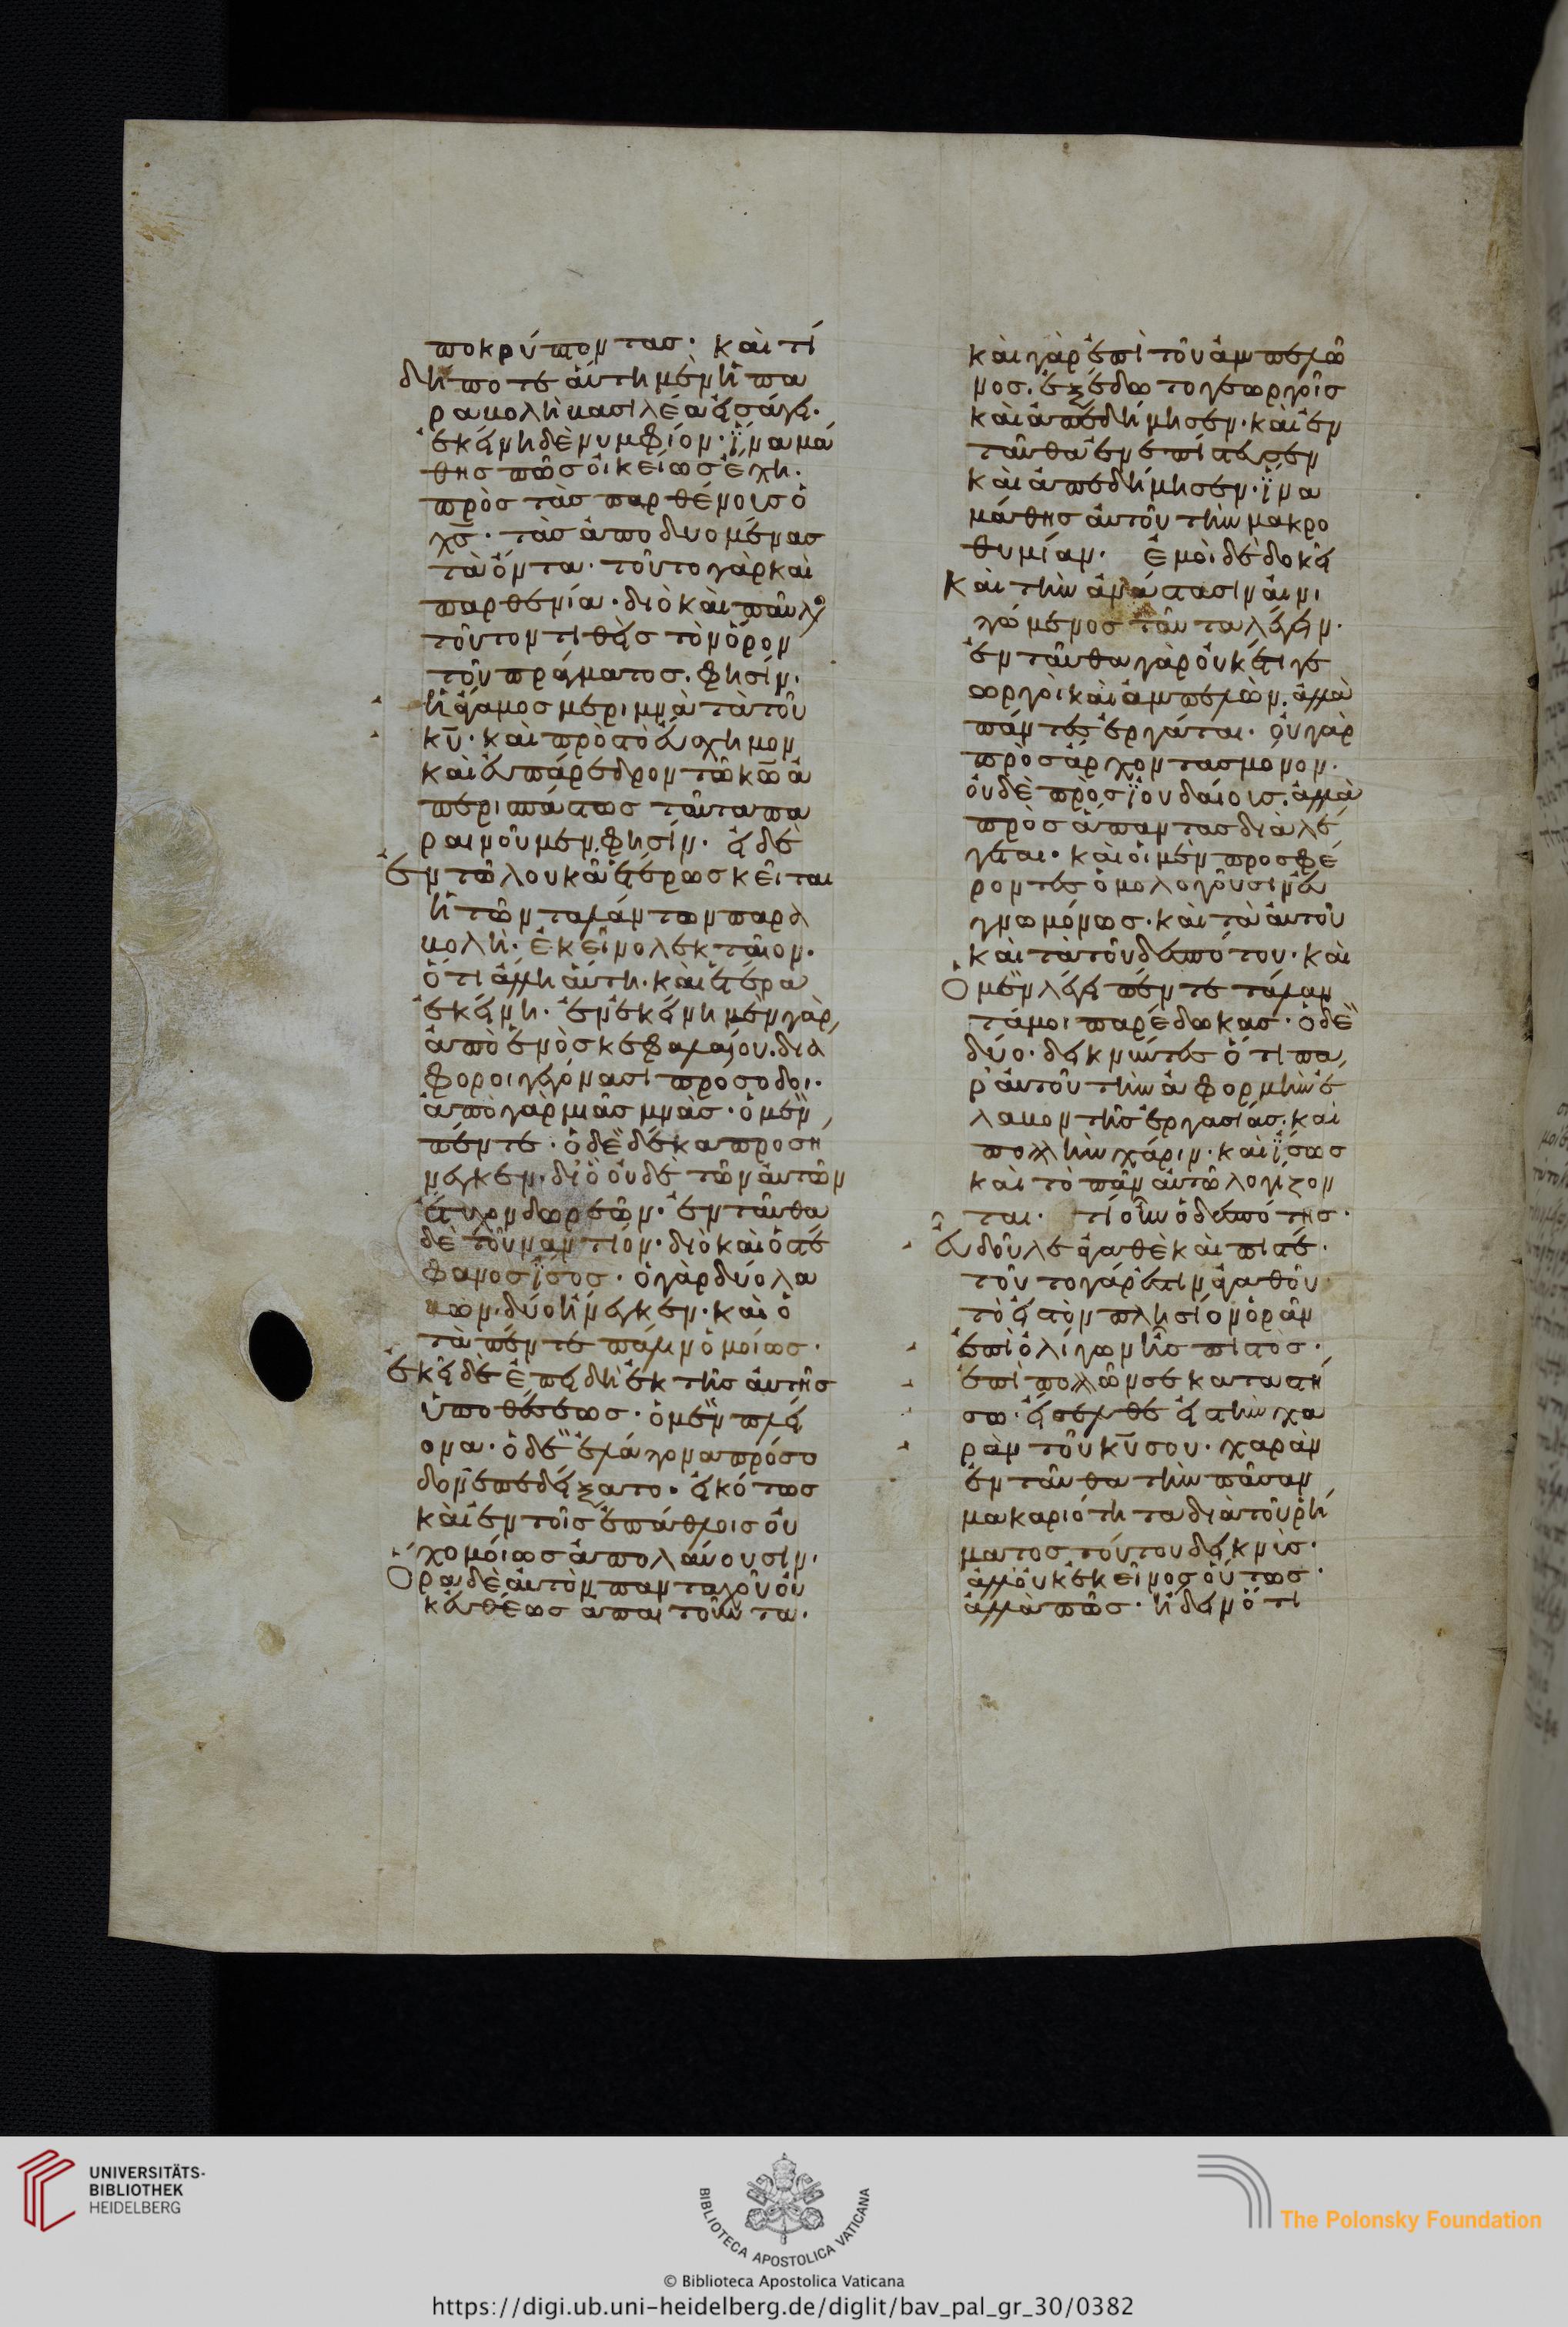 ποκρύπτοντας· καὶ τί
δήποτε ἁύτη μὲν ἡ πα
ραβολὴ βασιλέα ἐισάγει·
ἐκείνη δὲ νυμφίον· ἵνα μά
θης πῶς ὀικείως ἔχη·
πρὸς τὰς παρθένους ὁ
χς· τὰς ἀποδυομένας
τὰ ὄντα· τοῦτο γὰρ καὶ
παρθενία· διὸ καὶ παῦλος
τοῦτον τιθεὶς τὸν ὅρον
τοῦ πράγματος· φησίν·
ἡ ἄγαμος μεριμνᾶ τὰ τοῦ
κυ· καὶ πρὸς τὸ ἔυσχημον
καὶ ἐυπάρεδρον τῶ κω ἀ
περισπάστως ταῦτα πα
ραινοῦμεν φησίν· ἐι δὲ
ἐν τῶ λουκᾶ ἑτέρως κεῖται
ἡ τῶν ταλάντων παρα
βολὴ· ἐκεῖνο λεκταῖον·
ὅτι ἄλλη ἁύτη· καὶ ἑτέρα
ἐκείνη· ἐν ἐκείνη μὲν γὰρ
ἀπὸ ἑνὸς κεφαλαίου· διά
φοροι γεγόνασι πρόσοδοι·
ἀπὸ γὰρ μιᾶς μνᾶς· ὁ μὲν
πέντε· ὁ δὲ δέκα προσή
νεγκεν· διὸ ὀυδὲ τῶν ἀυτῶν
ἔτυχον δωρεῶν· ἐνταῦθα
δὲ τοὐναντίον· διὸ καὶ ὁ στέ
φανος ἴσος· ὁ γὰρ δύο λα
βων· δύο ἤνεγκεν· καὶ ὁ
τὰ πέντε πάλιν ὁμοίως·
ἐκεῖ δὲ ἐπειδὴ ἐκ τῆς ἀυτῆς
ὑποθέσεως· ὁ μὲν πλεί
ονα· ὁ δὲ ἐλάττονα πρόσο
δον ἐπεδείξατο· ἐικότως
καὶ ἐν τοῖς ἐπάθλοις ὀυ
χ ὁμοίως ἀπολάυουσιν·
Ὅρα δὲ ἀυτὸν πανταχοῦ ὀυ
κ ἐυθέως ἀπαιτοῦντα·
καὶ γὰρ ἐπὶ τοῦ ἀμπελῶ
νος· ἐξέδωτο γεωργοῖς
καὶ ἀπεδήμησεν· καὶ ἐν
ταῦθα ἐνεπίστευσεν
καὶ ἀπεδήμησεν· ἵνα
μάθης ἀυτοῦ τὴν μακρο
θυμίαν· Ἐμοὶ δὲ δοκεῖ
καὶ τὴν ἀνάστασιν ἀινι
γόμενος ταῦτα λέγειν·
ἐνταῦθα γὰρ ὀυκέτι γε
ωργὸι καὶ ἀμπελὼν· ἀλλὰ
πάντες ἐργάται· ὀυ γὰρ
πρὸς ἄρχοντας μόνον·
ὀυδὲ πρὸς ἰουδαίους· ἀλλὰ
πρὸς ἅπαντας διαλέ
γεται· καὶ ὁι μὲν προσφέ
ροντες ὁμολογοῦσιν ἐυ
γνωμόνως· καὶ τὰ ἀυτοῦ
καὶ τὰ τοῦ δεσπότου· καὶ
Ὁ μὲν λέγει πέντε τάλαν
τά μοι παρέδωκας· ὁ δὲ
δύο· δεικνύντες ὅτι πα
ρ ἀυτοῦ τὴν ἀφορμὴν ἔ
λαβον τῆς ἐργασίας· καὶ
πολλὴν χάριν· καὶ ἴσως
καὶ τὸ πᾶν ἀυτῶ λογίζον
ται· τί οὖν ὁ δεσπότης·
ἐυ δοῦλε ἀγαθὲ καὶ πιστέ·
τοῦτο γάρ ἐστιν ἀγαθοῦ
τὸ ἐις τὸν πλησίον ὁρᾶν
ἐπὶ ὀλίγων ἦς πιστὸς·
ἐπὶ πολλῶν σε καταστή
σω· ἔισελθε ἐις τὴν χα
ρὰν τοῦ κυ σου· χαρὰν
ἐνταῦθα τὴν πᾶσαν
μακαριότητα διὰ τοῦ ῥή
ματος τούτου δεικνὺς·
ἀλλ ὀυκ ἐκεῖνος ὁύτως·
ἀλλὰ πῶς· ἤδειν ὅτι
UNIVERSITÄTS-
BIBLIOTHEK
HEIDELBERG
BIBLIOTECA APOSTOLICA VATICANA
The Polonsky Foundation
© Biblioteca Apostolica Vaticana
https://digi.ub.uni-heidelberg.de/diglit/bav_pal_gr_30/0382